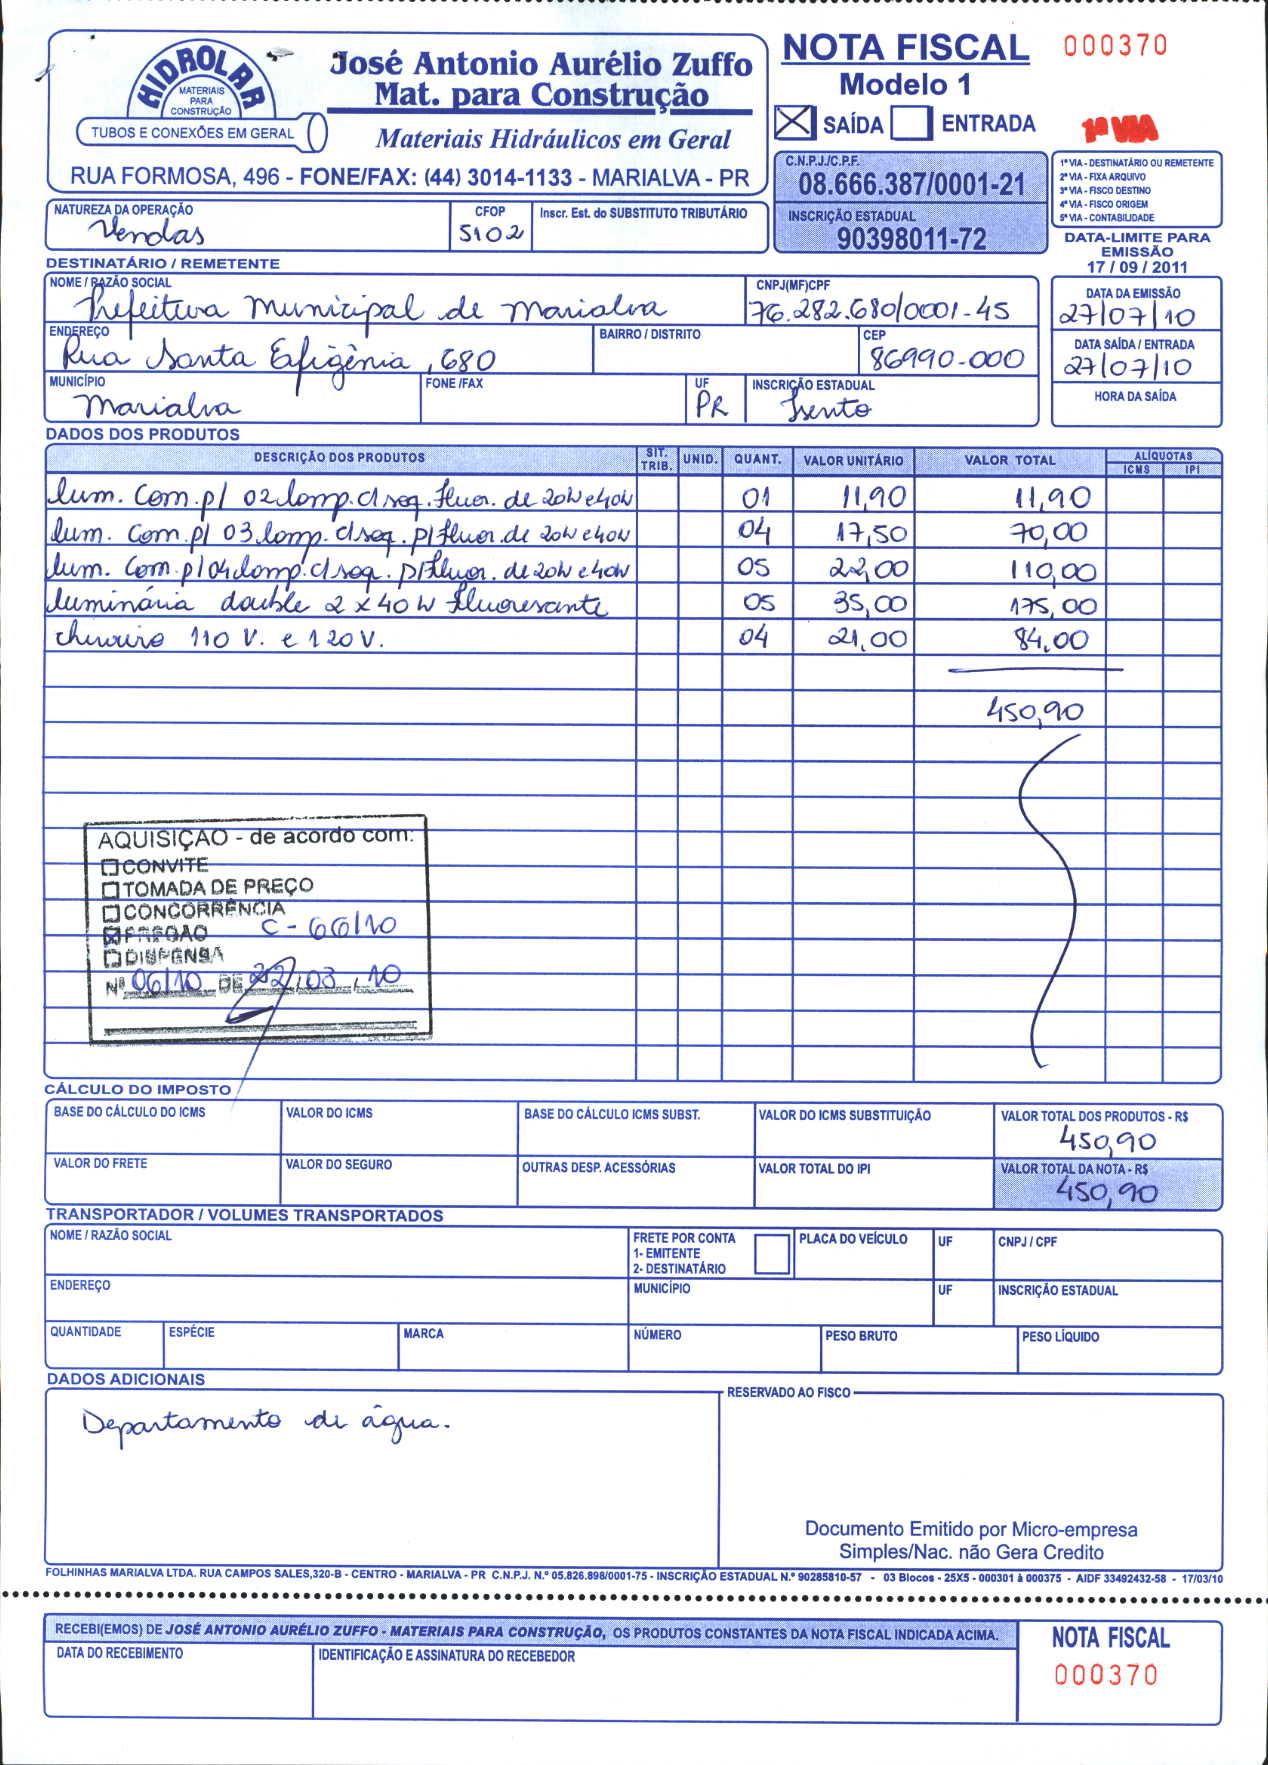 HIDROLAR
MATERIAIS
PARA
CONSTRUÇÃO
TUBOS E CONEXÕES EM GERAL
José Antonio Aurélio Zuffo
Mat. para Construção
Materiais Hidráulicos em Geral
RUA FORMOSA, 496 - FONE/FAX: (44) 3014-1133 - MARIALVA - PR
NOTA FISCAL 000370
Modelo 1
SAÍDA ENTRADA
1ª VIA
C.N.P.J./C.P.F.
08.666.387/0001-21
INSCRIÇÃO ESTADUAL
90398011-72
1ª VIA - DESTINATÁRIO OU REMETENTE
2ª VIA - FIXA ARQUIVO
3ª VIA - FISCO DESTINO
4ª VIA - FISCO ORIGEM
5ª VIA - CONTABILIDADE
DATA-LIMITE PARA
EMISSÃO
17 / 09 / 2011
NATUREZA DA OPERAÇÃO CFOP Inscr. Est. do SUBSTITUTO TRIBUTÁRIO
Vendas 5102
DESTINATÁRIO / REMETENTE
NOME / RAZÃO SOCIAL CNPJ(MF)CPF DATA DA EMISSÃO
Prefeitura Municipal de Marialva 76.282.680/0001-45 27/07/10
ENDEREÇO BAIRRO / DISTRITO CEP DATA SAÍDA / ENTRADA
Rua Santa Efigênia, 680 86990-000 27/07/10
MUNICÍPIO FONE /FAX UF INSCRIÇÃO ESTADUAL HORA DA SAÍDA
Marialva PR Isento
DADOS DOS PRODUTOS
DESCRIÇÃO DOS PRODUTOS SIT. TRIB. UNID. QUANT. VALOR UNITÁRIO VALOR TOTAL ALÍQUOTAS ICMS IPI
lum. Com. p/ 02 lamp. c/ seq. fluor. de 20W e 40W 01 11,90 11,90
lum. Com. p/ 03 lamp. c/ seq. p/ fluor. de 20W e 40W 04 17,50 70,00
lum. Com. p/ 04 lamp. c/ seq. p/ fluor. de 20W e 40W 05 22,00 110,00
luminária double 2 x 40 W fluorescante 05 35,00 175,00
chuveiro 110 V. e 120 V. 04 21,00 84,00
450,90
AQUISIÇÃO - de acordo com:
CONVITE
TOMADA DE PREÇO
CONCORRÊNCIA
PREGÃO C - 66/10
DISPENSA
Nº 06/10 DE 22/03/10
CÁLCULO DO IMPOSTO
BASE DO CÁLCULO DO ICMS VALOR DO ICMS BASE DO CÁLCULO ICMS SUBST. VALOR DO ICMS SUBSTITUIÇÃO VALOR TOTAL DOS PRODUTOS - R$
450,90
VALOR DO FRETE VALOR DO SEGURO OUTRAS DESP. ACESSÓRIAS VALOR TOTAL DO IPI VALOR TOTAL DA NOTA - R$
450,90
TRANSPORTADOR / VOLUMES TRANSPORTADOS
NOME / RAZÃO SOCIAL FRETE POR CONTA PLACA DO VEÍCULO UF CNPJ / CPF
1- EMITENTE
2- DESTINATÁRIO
ENDEREÇO MUNICÍPIO UF INSCRIÇÃO ESTADUAL
QUANTIDADE ESPÉCIE MARCA NÚMERO PESO BRUTO PESO LÍQUIDO
DADOS ADICIONAIS
RESERVADO AO FISCO
Departamento de água.
Documento Emitido por Micro-empresa
Simples/Nac. não Gera Credito
FOLHINHAS MARIALVA LTDA. RUA CAMPOS SALES,320-B - CENTRO - MARIALVA - PR C.N.P.J. N.º 05.826.898/0001-75 - INSCRIÇÃO ESTADUAL N.º 90285810-57 - 03 Blocos - 25X5 - 000301 à 000375 - AIDF 33492432-58 - 17/03/10
RECEBI(EMOS) DE JOSÉ ANTONIO AURÉLIO ZUFFO - MATERIAIS PARA CONSTRUÇÃO, OS PRODUTOS CONSTANTES DA NOTA FISCAL INDICADA ACIMA.
NOTA FISCAL
DATA DO RECEBIMENTO IDENTIFICAÇÃO E ASSINATURA DO RECEBEDOR
000370